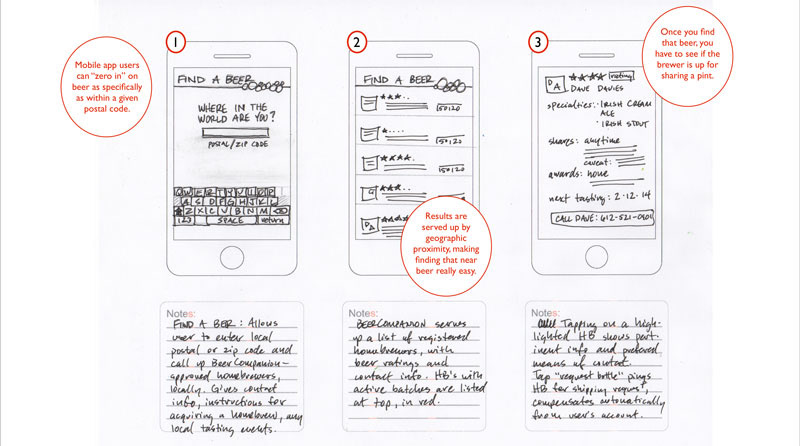 Mobile app users
can "zero in" on
beer as specifically
as within a given
postal code.
1
FIND A BEER
WHERE IN THE
WORLD ARE YOU?
POSTAL/ZIP CODE
Q W E R T Y U I O P
A S D F G H J K L
Z X C V B N M
123 SPACE return
2
FIND A BEER
50120
50120
DA
Results are
served up by
geographic
proximity, making
finding that near
beer really easy.
3
Once you find
that beer, you
have to see if the
brewer is up for
sharing a pint.
DA
rating
DAVE DAVIES
specialties: · IRISH CREAM
ALE
· IRISH STOUT
shares: anytime
caveat:
awards: none
next tasting: 2·12·14
CALL DAVE: 612-521-0901
Notes:
FIND A BEER: Allows
user to enter local
postal or zip code and
call up BeerCompanion-
approved homebrewers,
locally. Gives contact
info, instructions for
acquiring a homebrew, any
local tasting events.
Notes:
BEERCOMPANION serves
up a list of registered
homebrewers, with
beer ratings and
contact info. HB's with
active batches are listed
at top, in red.
Notes:
Tapping on a high-
lighted HB shows pert-
inent info and preferred
means of contact.
Tap "request bottle" pings
HB for shipping request,
compensates automatically
from user's account.